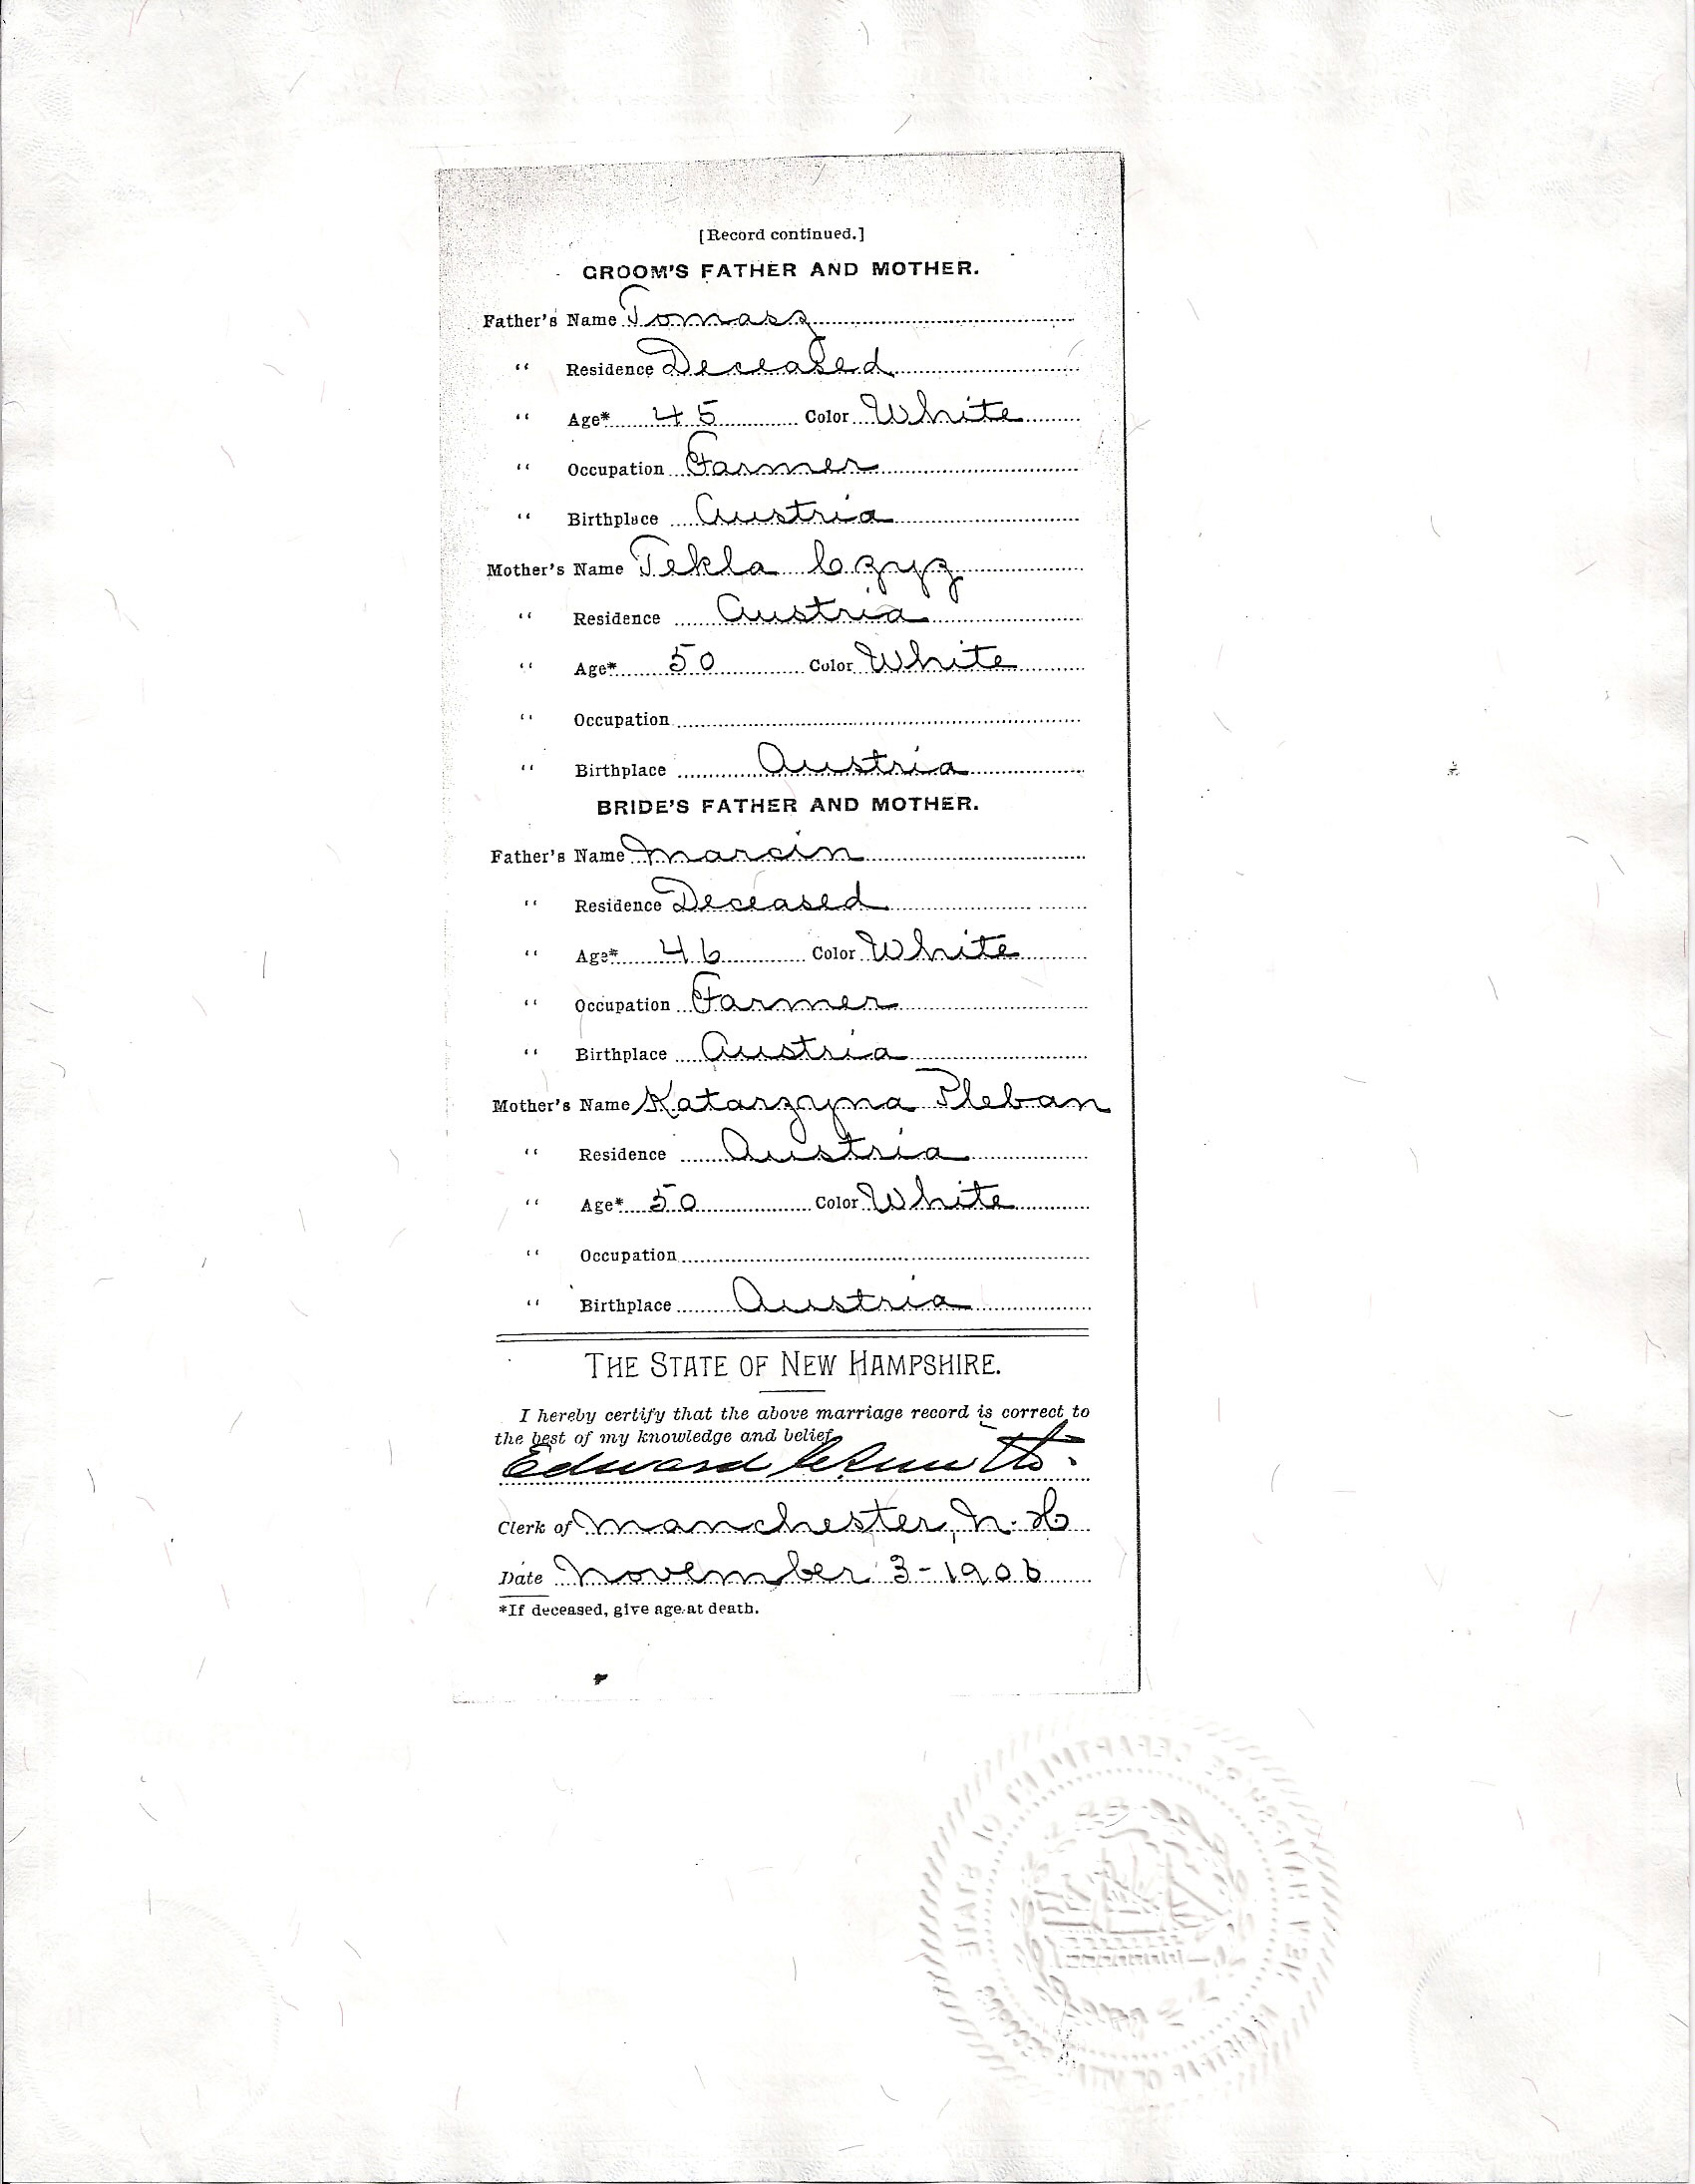 [Record continued.]
GROOM'S FATHER AND MOTHER.
Father's Name Tomasz
" Residence Deceased
" Age* 45 Color White
" Occupation Farmer
" Birthplace Austria
Mother's Name Tekla Czyz
" Residence Austria
" Age* 50 Color White
" Occupation
" Birthplace Austria
BRIDE'S FATHER AND MOTHER.
Father's Name Marcin
" Residence Deceased
" Age* 46 Color White
" Occupation Farmer
" Birthplace Austria
Mother's Name Katarzyna Pleban
" Residence Austria
" Age* 50 Color White
" Occupation
" Birthplace Austria
THE STATE OF NEW HAMPSHIRE.
I hereby certify that the above marriage record is correct to
the best of my knowledge and belief
Edward
Clerk of Manchester, N. H
Date November 3-1906
*If deceased, give age at death.